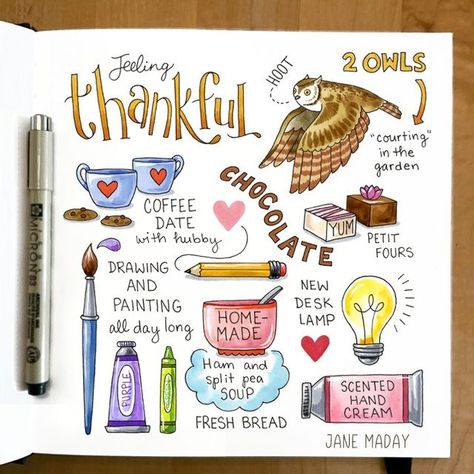 Feeling
thankful
HOOT
2 OWLS
"courting"
in the
garden
COFFEE
DATE
with hubby
CHOCOLATE
YUM
PETIT
FOURS
DRAWING
AND
PAINTING
all day long
HOME-
MADE
Ham and
split pea
SOUP
FRESH BREAD
NEW
DESK
LAMP
PURPLE
SCENTED
HAND
CREAM
JANE MADAY
MICRON 03